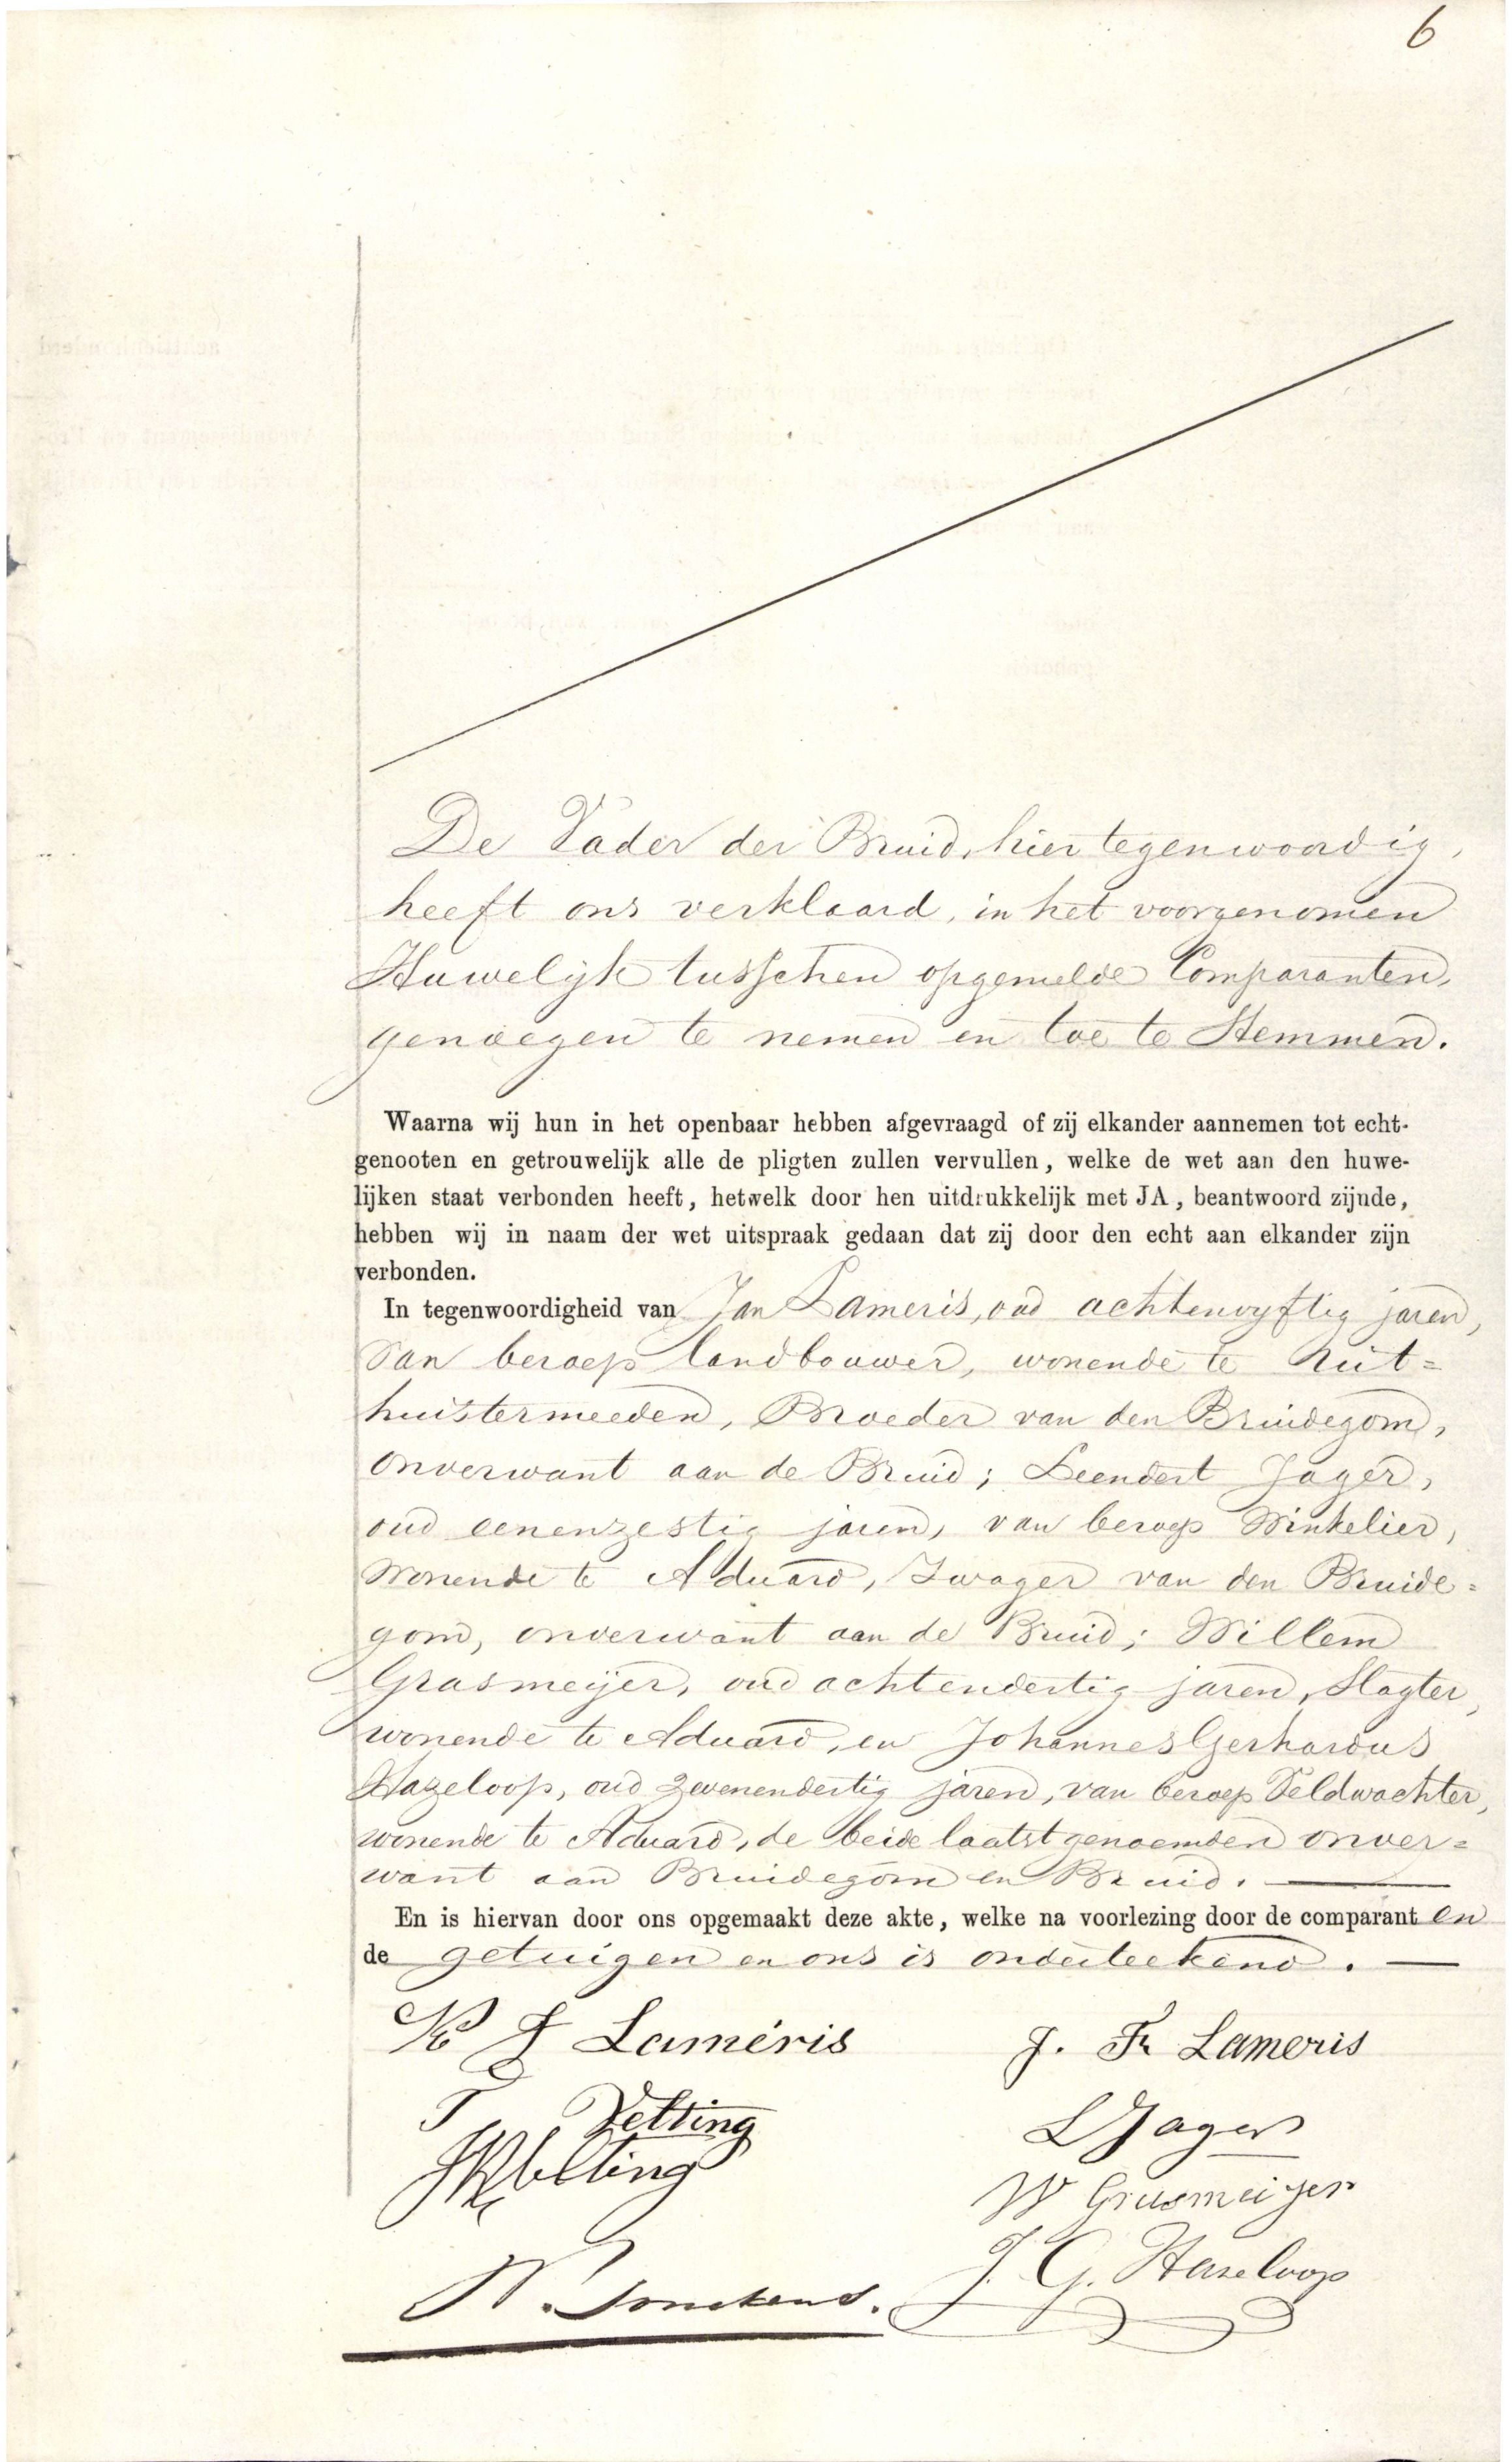 6
De Vader der Bruid, hier tegenwoordig,
heeft ons verklaard, in het voorgenomen
Huwelijk tusschen opgemelde Comparanten,
genoegen te nemen en toe te Stemmen.
Waarna wij hun in het openbaar hebben afgevraagd of zij elkander aannemen tot echt-
genooten en getrouwelijk alle de pligten zullen vervullen, welke de wet aan den huwe-
lijken staat verbonden heeft, hetwelk door hen uitdrukkelijk met JA, beantwoord zijnde,
hebben wij in naam der wet uitspraak gedaan dat zij door den echt aan elkander zijn
verbonden.
In tegenwoordigheid van Jan Lameris, oud achtenvyftig jaren,
van beroep landbouwer, wonende te
huistermeeden, Broeder van den Bruidegom,
onverwant aan de Bruid; Leendert Jager,
oud eenenzestig jaren, van beroep Winkelier,
Wonende te Aduard, Zwager van den Bruide=
gom, onverwant aan de Bruid; Willem
Grasmeijer, oud achtendertig jaren, Slagter,
wonende te Aduard, en Johannes Gerhardus
Hazeloop, oud zevenendertig jaren, van beroep Veldwachter,
wonende te Aduard, de beide laatstgenoemden onver=
want aan Bruidegom en Bruid.
En is hiervan door ons opgemaakt deze akte, welke na voorlezing door de comparant en
de getuigen en ons is onderteekend.
Lameris
J. Fr Lameris
L Jager
W Grasmeijer
J. G. Hazeloop